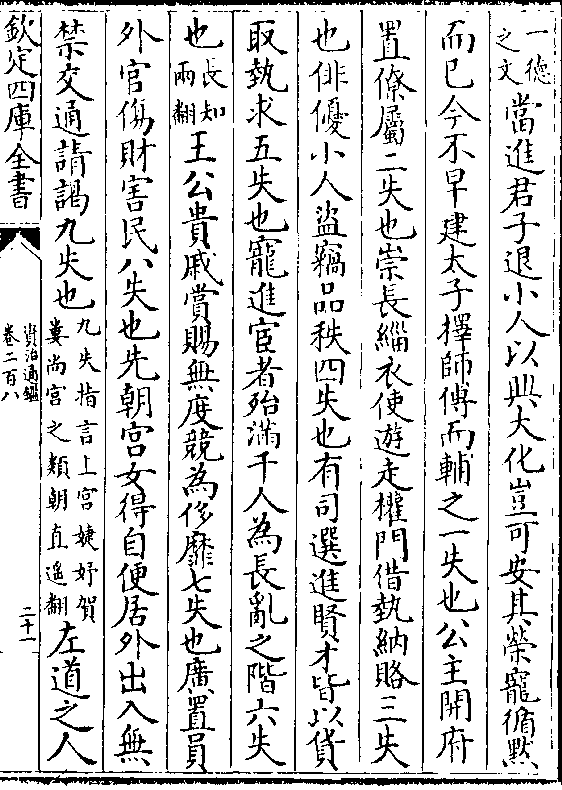 一德
之文
當進君子退小人以興大化豈可安其榮寵循默
而已今不早建太子擇師傅而輔之一失也公主開府
置僚屬二失也崇長緇衣使遊走權門借埶納賂三失
也俳優小人盜竊品秩四失也有司選進賢才皆以貨
取埶求五失也寵進宦者殆滿千人為長亂之階六失
也
長知
兩翻
王公貴戚賞賜無度競為侈靡七失也廣置員
外官傷財害民八失也先朝宮女得自便居外出入無
禁交通請謁九失也
九失指言上官婕妤賀
婁尚宮之類朝直遙翻
左道之人
欽定四庫全書
資治通鑑
卷二百八
二十一